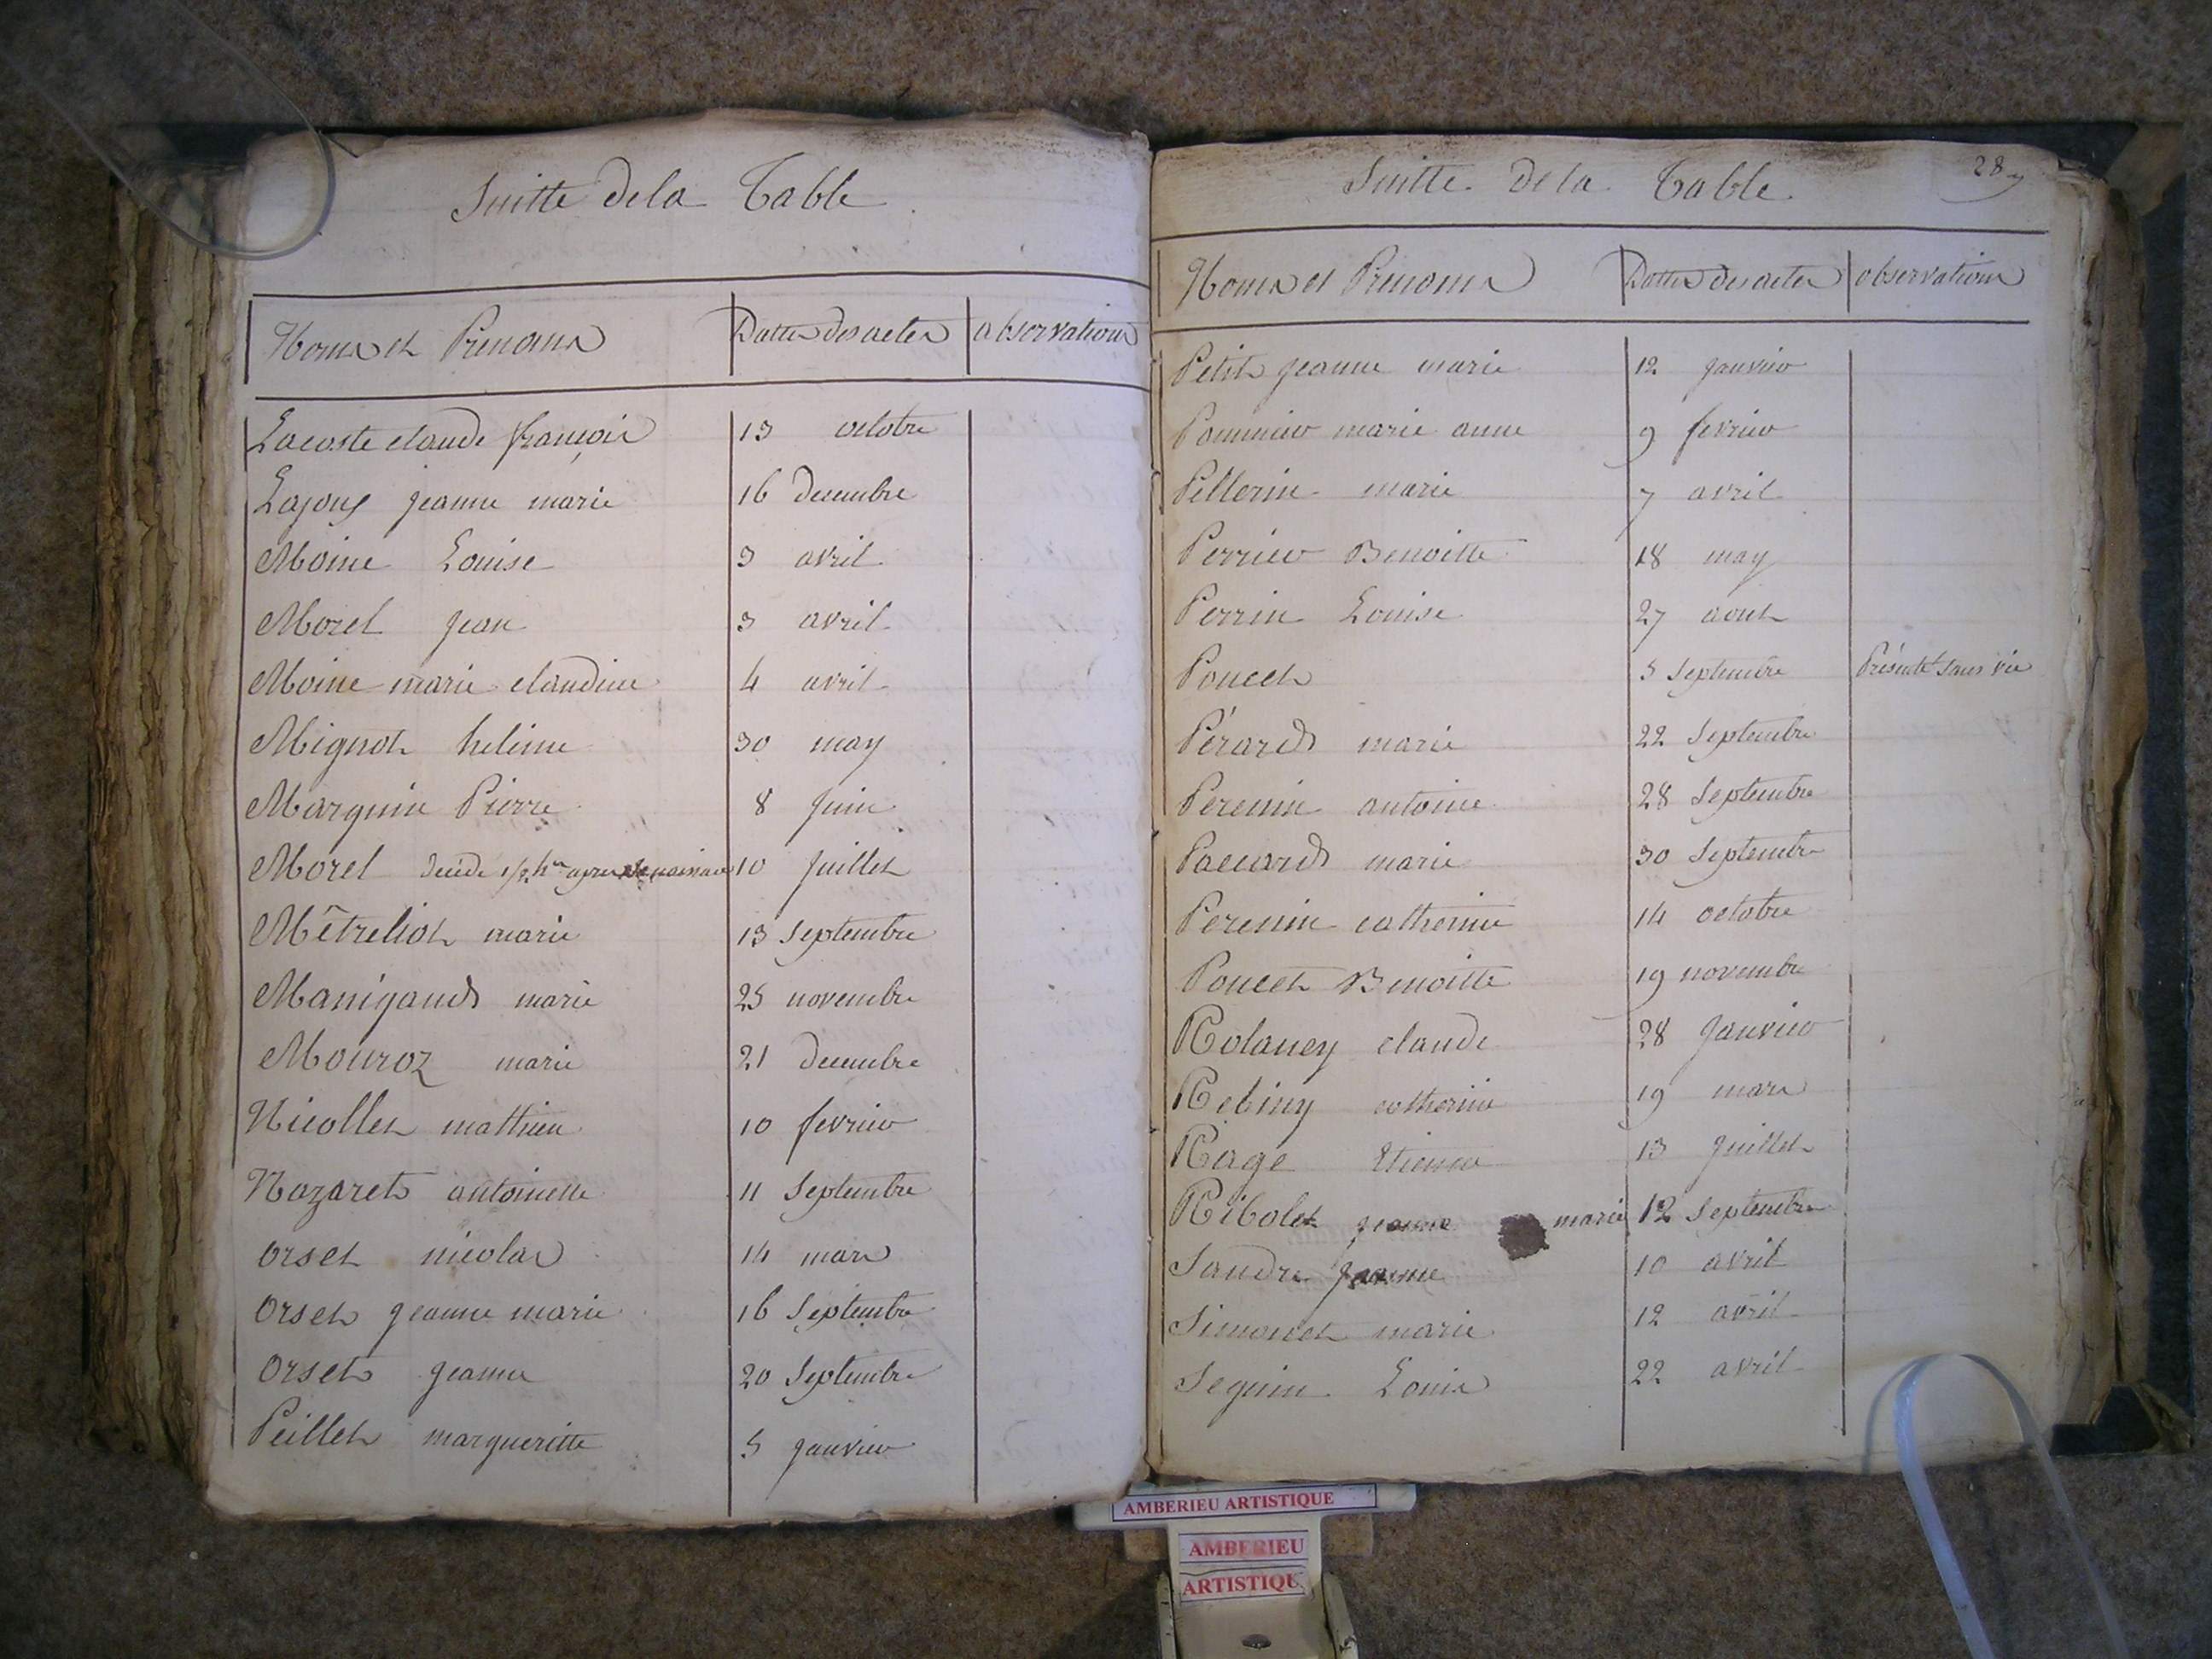 Suitte dela Table
Noms et Prenoms Dattes des actes observations
Lacoste claude françois 13 octobre
Lajoux jeanne marie 16 decembre
Moine Louise 3 avril
Morel jean 3 avril
Moine marie claudine 4 avril
Mignot heline 30 may
Marquin Pierre 8 juin
Morel decedé 1/2 hre apres naissance 10 juillet
Mêtreliot marie 13 septembre
Manigaud marie 25 novembre
Mouroz marie 21 decembre
Nicollet mathieu 10 fevrier
Nazaret antoinette 11 septembre
orset nicolas 14 mars
Orset jeanne marie 16 septembre
Orset jeanne 20 septembre
Peillet margueritte 5 janvier
Suitte de la Table
28
Noms et Prenoms Dattes des actes observations
Petit jeanne marie 12 janvier
Pommier marie anne 9 fevrier
Pellerin marie 7 avril
Perrier Benoitte 18 may
Perrin Louise 27 aout
Poncet 5 septembre Présenté sans vie
Pérard marie 22 septembre
antoine 28 septembre
Paccard marie 30 septembre
catherine 14 octobre
Poncet Benoitte 19 novembre
Rolaney claude 28 janvier
catherine 19 mars
Rage Etienne 13 juillet
Ribolet jeanne marie 12 septembre
Sandre jeanne 10 avril
Simonet marie 12 avril
Seguin Louis 22 avril
AMBERIEU ARTISTIQUE
AMBERIEU
ARTISTIQUE